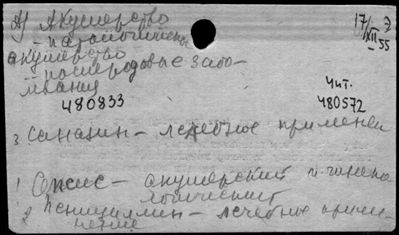 А) Акушерство
17/XII-55
Э
- патологическ
акушерство
- послеродовые забо-
левания
480833
Чит.
480572
3 саназин - лечебное применен
1 Сепсис - акушерский и гинеко
логический
2 Пенициллин - лечебное приме-
нение